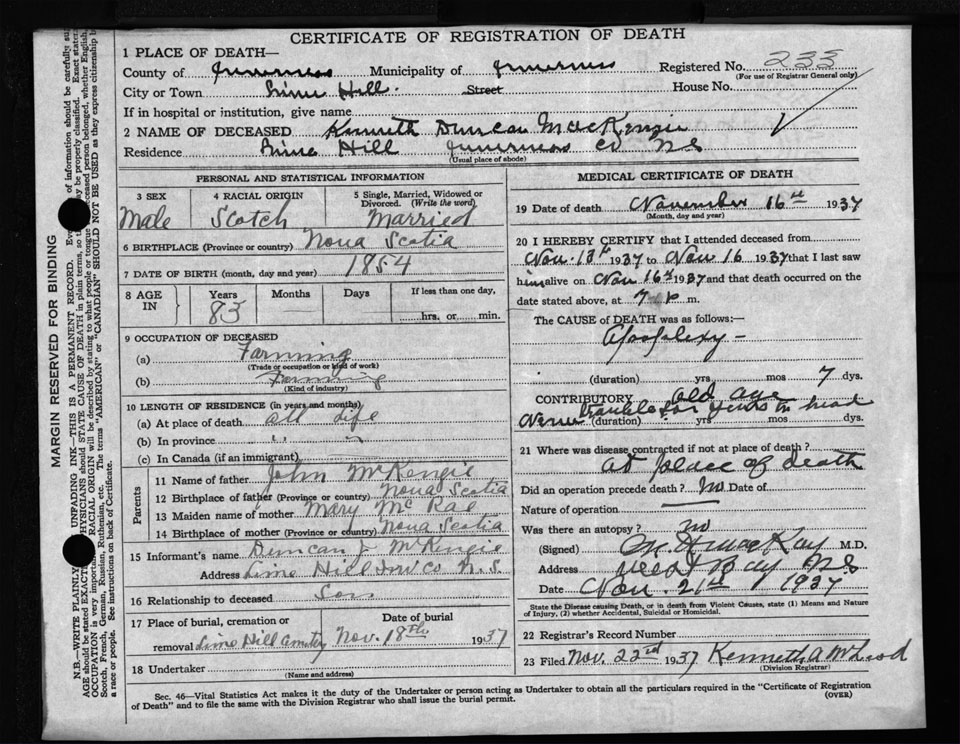 CERTIFICATE OF REGISTRATION OF DEATH
1 PLACE OF DEATH—
County of Inverness Municipality of Inverness Registered No. 233
(For use of Registrar General only)
City or Town Lime Hill. Street House No.
If in hospital or institution, give name
2 NAME OF DECEASED Kenneth Duncan MacKenzie
Residence Lime Hill Inverness Co N S
(Usual place of abode)
PERSONAL AND STATISTICAL INFORMATION
3 SEX 4 RACIAL ORIGIN 5 Single, Married, Widowed or
Divorced. (Write the word)
Male Scotch Married
6 BIRTHPLACE (Province or country) Nova Scotia
7 DATE OF BIRTH (month, day and year) 1854
8 AGE IN Years Months Days If less than one day,
83 hrs. or min.
9 OCCUPATION OF DECEASED
(a) Farming
(Trade or occupation or kind of work)
(b) Farming
(Kind of industry)
10 LENGTH OF RESIDENCE (in years and months)
(a) At place of death all life
(b) In province " "
(c) In Canada (if an immigrant)
Parents
11 Name of father John McKenzie
12 Birthplace of father (Province or country) Nova Scotia
13 Maiden name of mother Mary McRae
14 Birthplace of mother (Province or country) Nova Scotia
15 Informant's name Duncan J McKenzie
Address Lime Hill Inv Co N.S.
16 Relationship to deceased Son
17 Place of burial, cremation or Date of burial
removal Lime Hill Nov. 18th 1937
18 Undertaker
(Name and address)
MEDICAL CERTIFICATE OF DEATH
19 Date of death November 16th 1937
(Month, day and year)
20 I HEREBY CERTIFY that I attended deceased from
Nov. 13th 1937 to Nov 16 1937 that I last saw
him alive on Nov 16th 1937 and that death occurred on
date stated above, at 7 P m.
The CAUSE of DEATH was as follows:—
Apoplexy —
(duration) yrs mos 7 dys.
CONTRIBUTORY old age
trouble for years in head
(duration) yrs mos dys.
21 Where was disease contracted if not at place of death?
At place of death
Did an operation precede death? No Date of
Nature of operation —
Was there an autopsy? no
(Signed) MacKay M.D.
Address West Bay NS
Date Nov. 21st 1937
State the Disease causing Death, or in death from Violent Causes, state (1) Means and Nature
of Injury, (2) whether Accidental, Suicidal or Homicidal.
22 Registrar's Record Number
23 Filed Nov. 22nd 1937 Kenneth A McLeod
(Division Registrar)
Sec. 46—Vital Statistics Act makes it the duty of the Undertaker or person acting as Undertaker to obtain all the particulars required in the "Certificate of Registration
of Death" and to file the same with the Division Registrar who shall issue the burial permit.
(OVER)
MARGIN RESERVED FOR BINDING
N.B.—WRITE PLAINLY UNFADING INK—THIS IS A PERMANENT RECORD. of information should be carefully
AGE should be stated EXACT HYSICIANS should STATE CAUSE OF DEATH in plain terms, so be properly classified. Exact
OCCUPATION is very important RACIAL ORIGIN will be described by stating to what people or tongue deceased person belonged, whether English,
Scotch, French, German, Russian, Ruthenian, etc. The terms "AMERICAN" or "CANADIAN" SHOULD NOT BE USED as they express citizenship
a race or people. See instructions on back of Certificate.